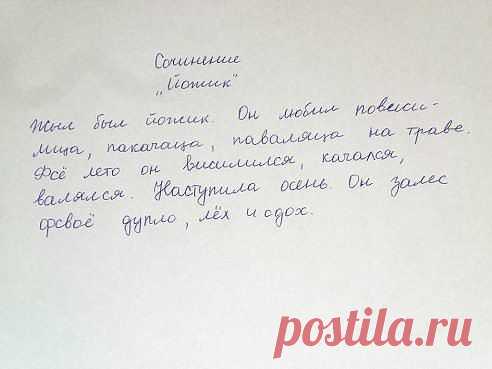 Сочинение
„Йожик"
Жыл был йожик. Он любил повеси-
лица, пакачаца, паваляца на траве.
Фсё лето он висилился, качался,
валялся. Наступила осень. Он залес
фсваё дупло, лёх и здох.
postila.ru